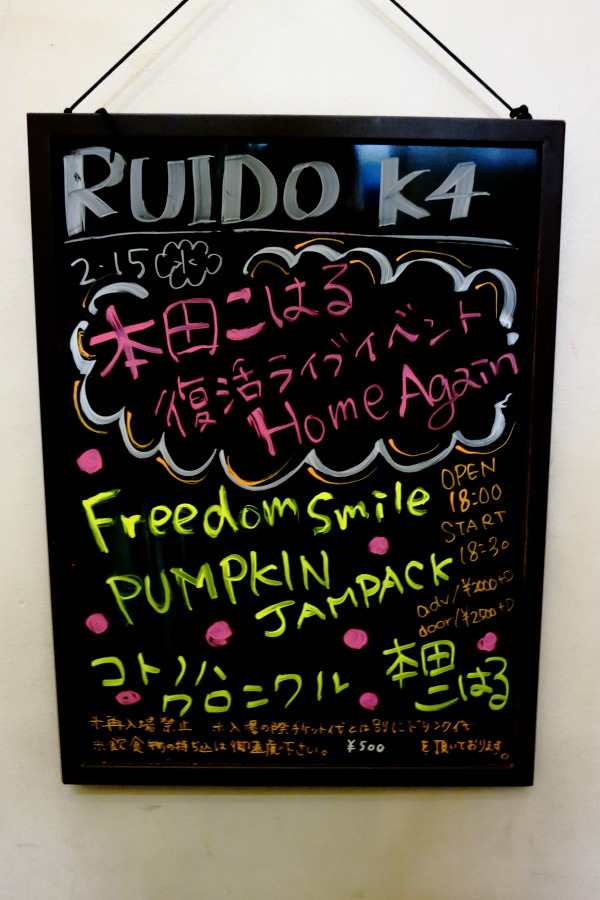 RUIDO K4
2.15 水
本田こはる
復活ライブイベント
Home Again
OPEN
18:00
START
18:30
adv/¥2000+D
door/¥2500+D
Freedom Smile
PUMPKIN
JAMPACK
コトノハ
クロニクル
本田
こはる
※再入場禁止 ※入場の際チケット代とは別にドリンク代
※飲食物の持ち込は御遠慮下さい。 ¥500 を頂いております。